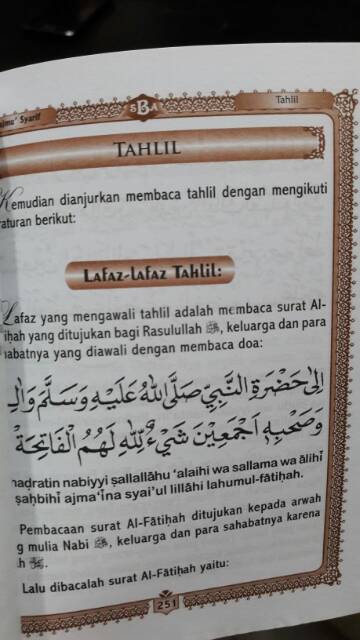 Syarif
SBA
Tahlil
TAHLIL
Kemudian dianjurkan membaca tahlil dengan mengikuti
aturan berikut:
Lafaz-lafaz Tahlil:
Lafaz yang mengawali tahlil adalah membaca surat Al-
yang ditujukan bagi Rasulullah ﷺ, keluarga dan para
sahabatnya yang diawali dengan membaca doa:
اِلٰى حَضْرَةِ النَّبِيِّ صَلَّى اللهُ عَلَيْهِ وَسَلَّمَ وَاٰلِـ
وَصَحْبِهٖ اَجْمَعِيْنَ شَيْءٌ لِلّٰهِ لَهُمُ الْفَاتِحَةْ
hadratin nabiyyi ṣallallāhu ‘alaihi wa sallama wa ālihī
ṣaḥbihī ajma‘īna syai'ul lillāhi lahumul-fātiḥah.
Pembacaan surat Al-Fātiḥah ditujukan kepada arwah
g mulia Nabi ﷺ, keluarga dan para sahabatnya karena
h ﷻ.
Lalu dibacalah surat Al-Fātiḥah yaitu:
251